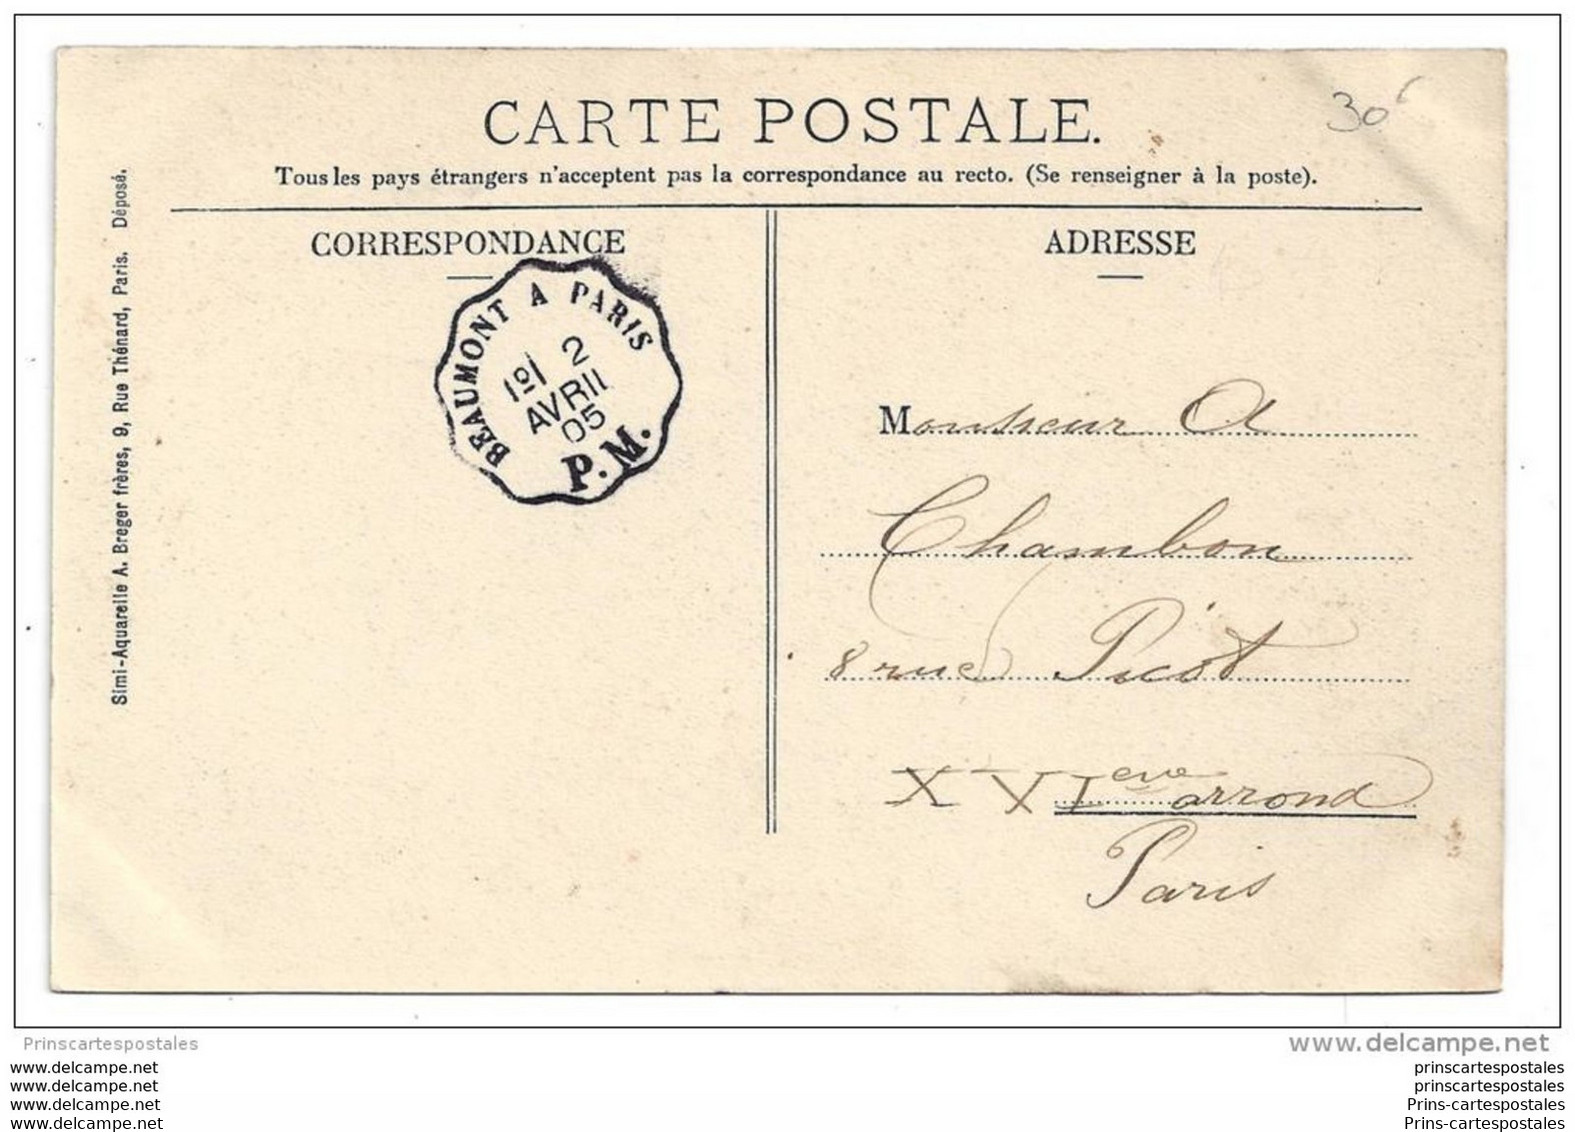 CARTE POSTALE.
30€
Tous les pays étrangers n'acceptent pas la correspondance au recto. (Se renseigner à la poste).
CORRESPONDANCE
ADRESSE
BEAUMONT A PARIS
2
AVRIL
05
P.M.
Monsieur A
Chambon
8 rue Picot
XVIeme arrond
Paris
Simi-Aquarelle A. Breger frères, 9, Rue Thénard, Paris. Déposé.
Prinscartespostales
www.delcampe.net
www.delcampe.net
www.delcampe.net
www.delcampe.net
www.delcampe.net
prinscartespostales
prinscartespostales
Prins-cartespostales
Prins-cartespostales